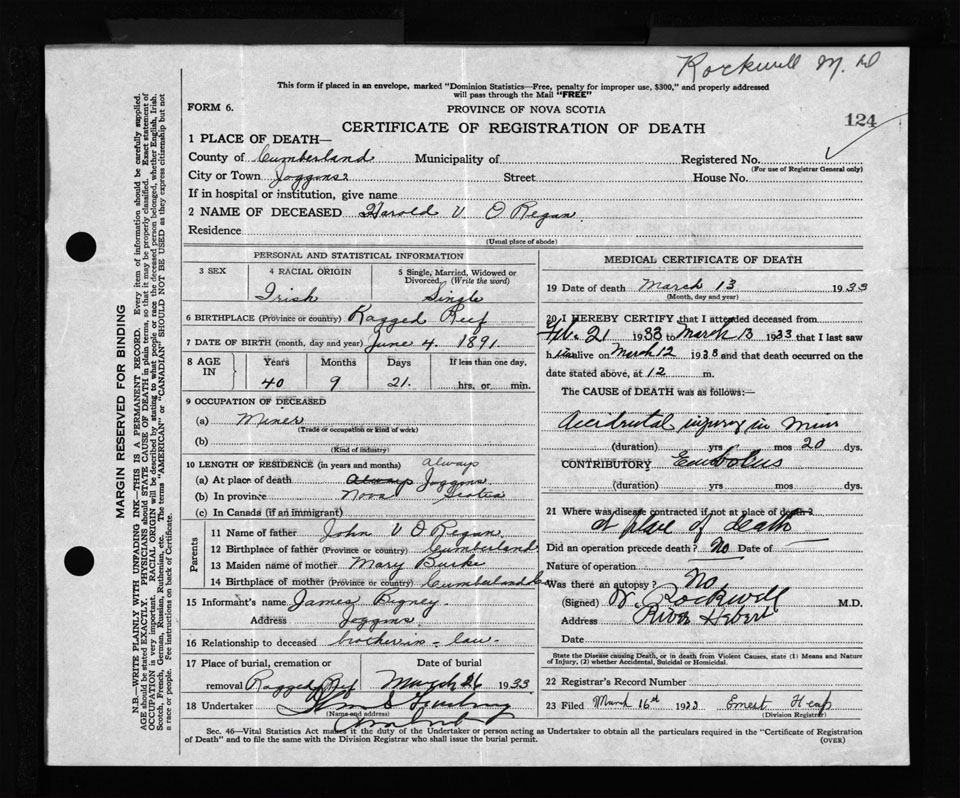 Rockwell M.D
This form if placed in an envelope, marked "Dominion Statistics—Free, penalty for improper use, $300," and properly addressed
will pass through the Mail "FREE"
FORM 6.
PROVINCE OF NOVA SCOTIA
124
CERTIFICATE OF REGISTRATION OF DEATH
1 PLACE OF DEATH—
County of Cumberland Municipality of Registered No.
(For use of Registrar General only)
City or Town Joggins Street House No.
If in hospital or institution, give name
2 NAME OF DECEASED Harold V. O Regan.
Residence
(Usual place of abode)
PERSONAL AND STATISTICAL INFORMATION
3 SEX 4 RACIAL ORIGIN 5 Single, Married, Widowed or Divorced. (Write the word)
Irish Single
6 BIRTHPLACE (Province or country) Ragged Reef
7 DATE OF BIRTH (month, day and year) June 4. 1891.
8 AGE IN Years Months Days If less than one day,
40 9 21. hrs. or min.
9 OCCUPATION OF DECEASED
(a) Miner
(Trade or occupation or kind of work)
(b)
(Kind of industry)
10 LENGTH OF RESIDENCE (in years and months) Always
(a) At place of death Always Joggins
(b) In province Nova Scotia
(c) In Canada (if an immigrant)
Parents
11 Name of father John V O. Regan
12 Birthplace of father (Province or country) Cumberland
13 Maiden name of mother Mary Burke
14 Birthplace of mother (Province or country) Cumberland Co
15 Informant's name James Bigney
Address Joggins
16 Relationship to deceased brother-in-law.
17 Place of burial, cremation or Date of burial
removal Ragged Reef March 26 1933
18 Undertaker
(Name and address)
MEDICAL CERTIFICATE OF DEATH
19 Date of death March 13 1933
(Month, day and year)
20 I HEREBY CERTIFY that I attended deceased from
Feb. 21 1933 to March 13 1933 that I last saw
h im alive on March 12 1933 and that death occurred on the
date stated above, at 12 m.
The CAUSE of DEATH was as follows:—
Accidental injury in mine
(duration) yrs mos 20 dys.
CONTRIBUTORY Embolus
(duration) yrs mos dys.
21 Where was disease contracted if not at place of death?
at place of death
Did an operation precede death? No Date of
Nature of operation
Was there an autopsy? No,
(Signed) W. Rockwell M.D.
Address River Hebert
Date
State the Disease causing Death, or in death from Violent Causes, state (1) Means and Nature
of Injury, (2) whether Accidental, Suicidal or Homicidal.
22 Registrar's Record Number
23 Filed March 16th 1933 Ernest Heap
(Division Registrar)
Sec. 46—Vital Statistics Act makes it the duty of the Undertaker or person acting as Undertaker to obtain all the particulars required in the "Certificate of Registration
of Death" and to file the same with the Division Registrar who shall issue the burial permit.
(OVER)
MARGIN RESERVED FOR BINDING
N.B.—WRITE PLAINLY WITH UNFADING INK—THIS IS A PERMANENT RECORD. Every item of information should be carefully supplied.
AGE should be stated EXACTLY. PHYSICIANS should STATE CAUSE OF DEATH in plain terms, so that it may be properly classified. Exact statement of
OCCUPATION is very important. RACIAL ORIGIN will be described by stating to what people or race the deceased person belonged, whether English, Irish,
Scotch, French, German, Russian, Ruthenian, etc. The terms "AMERICAN" or "CANADIAN" SHOULD NOT BE USED as they express citizenship but not
a race or people. See instructions on back of Certificate.